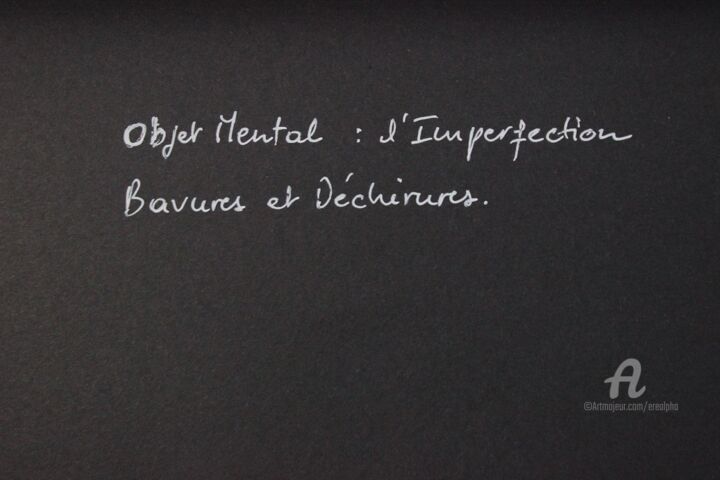 Objet Mental : l'Imperfection
Bavures et Déchirures.
A
©Artmajeur.com/erealpha